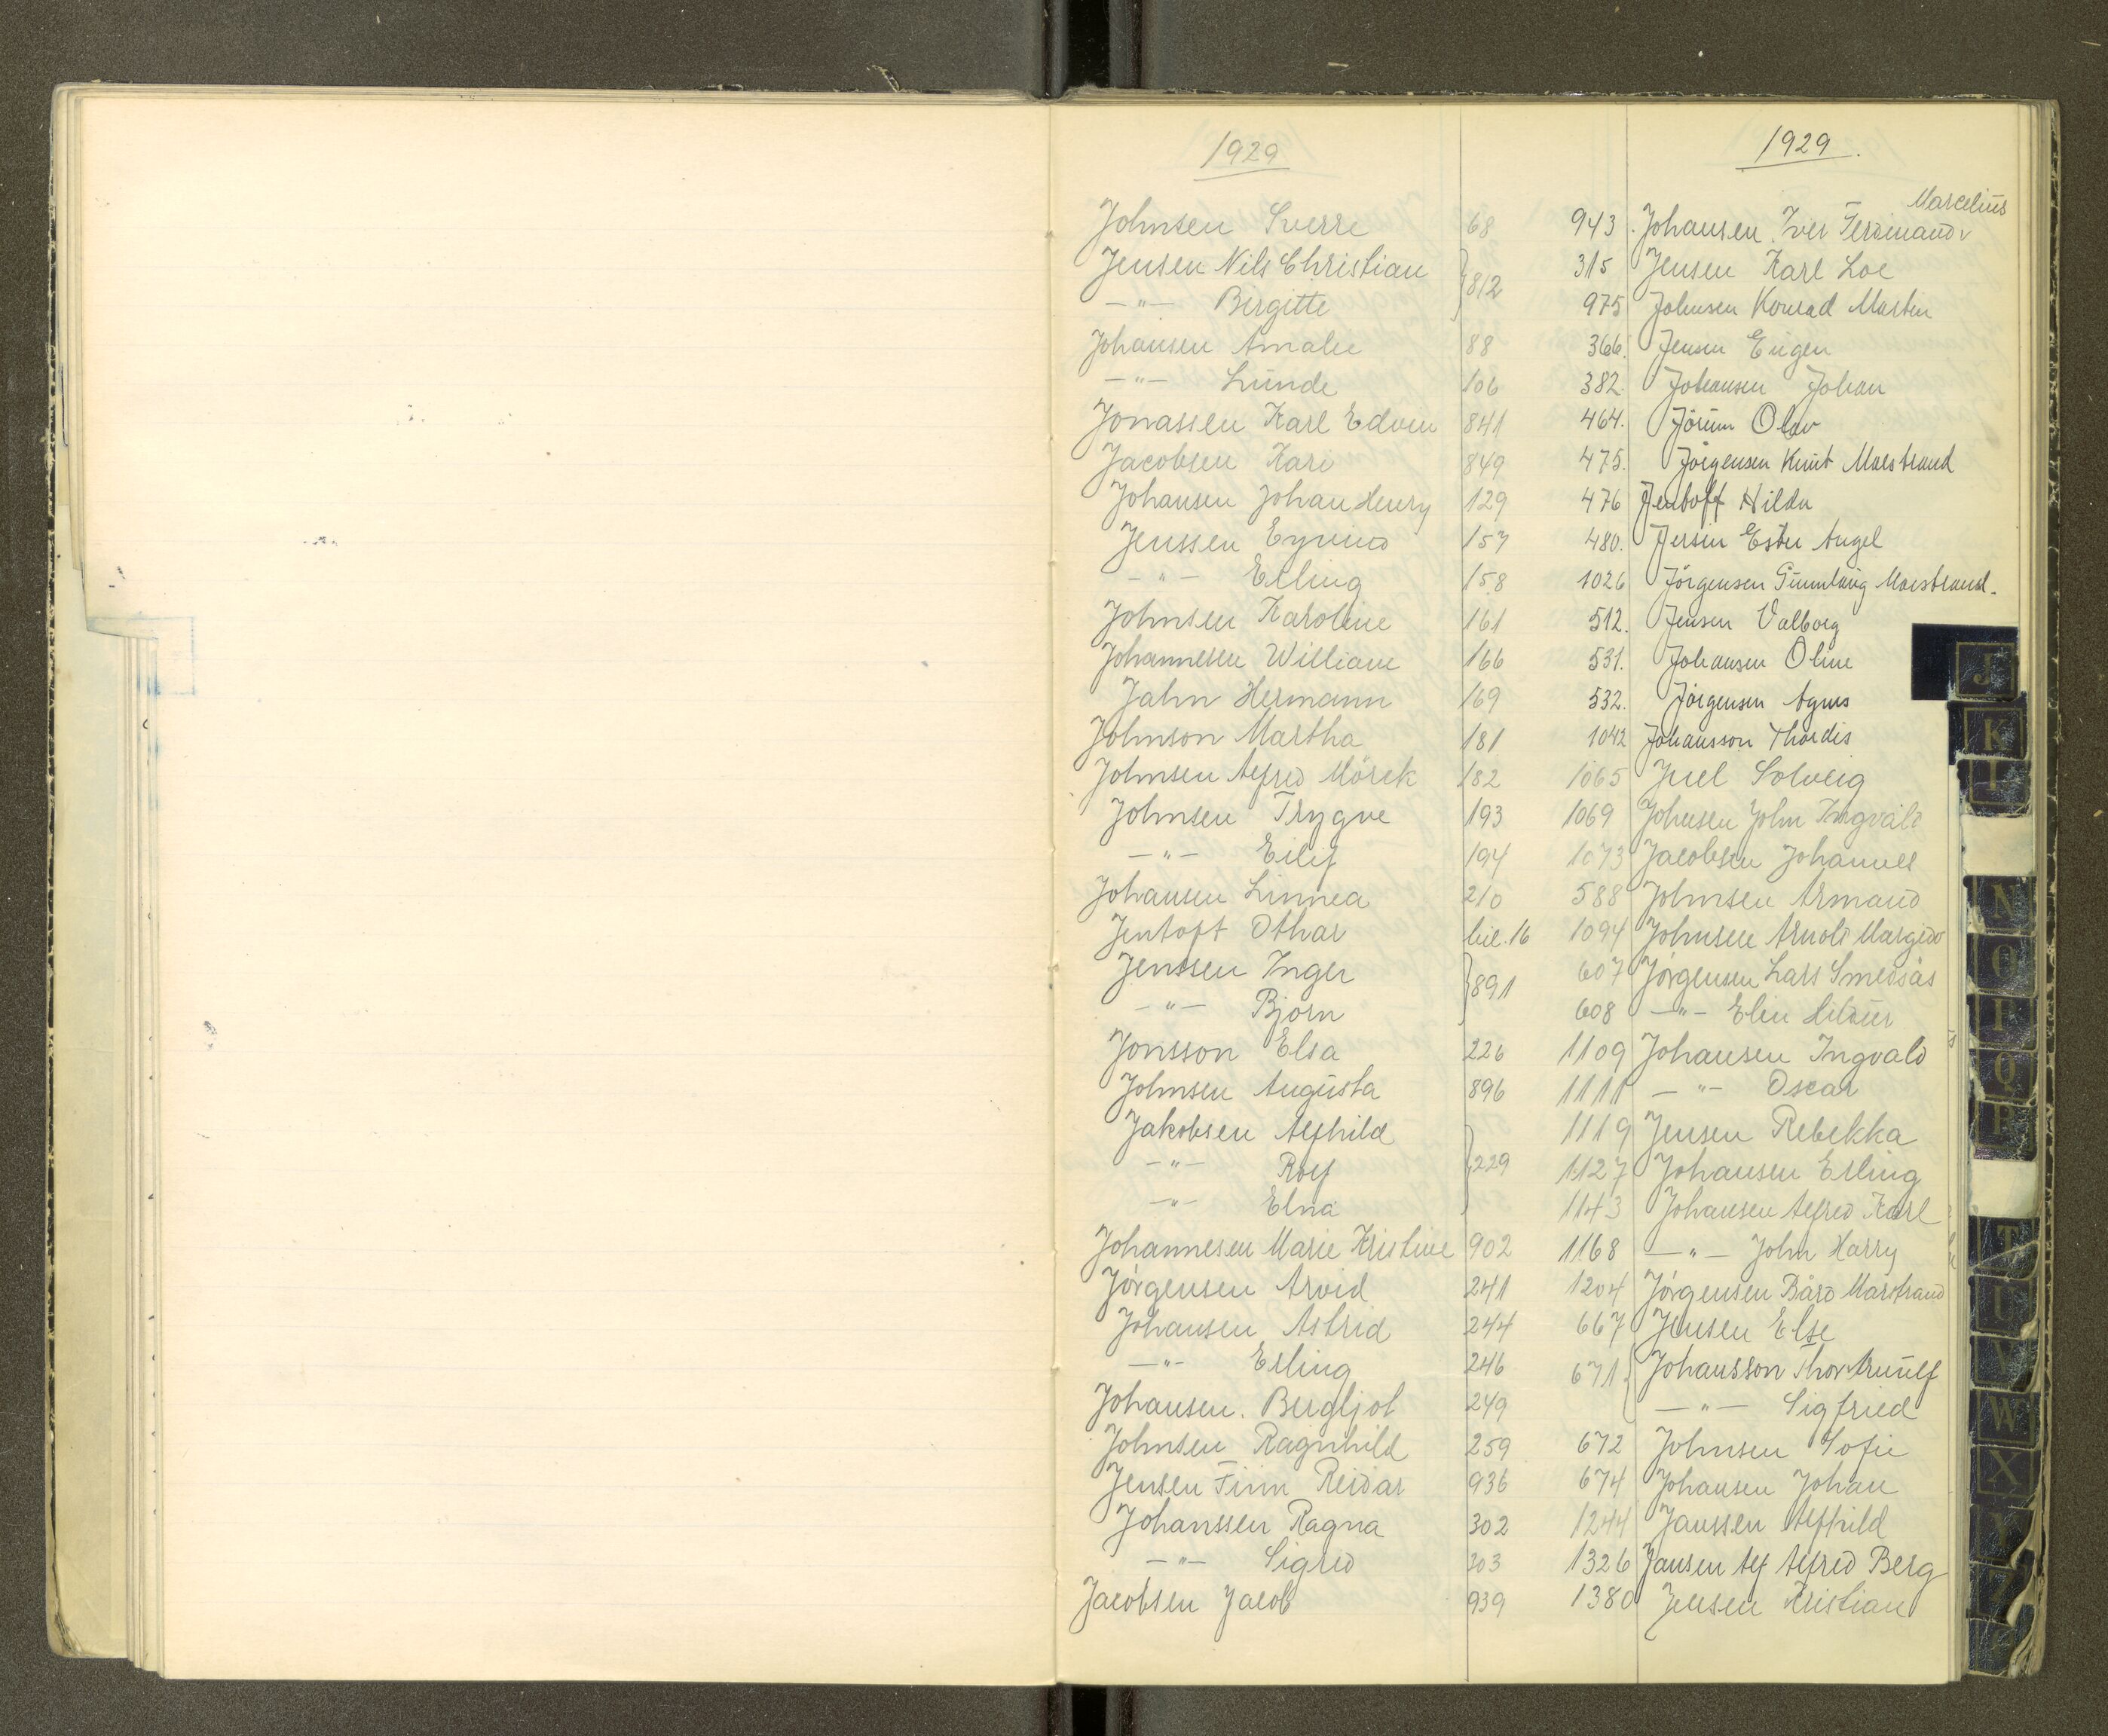 1929
Johnsen Sverre 68
Jensen Nils Christian } 812
—"— Birgitte
Johansen Amalie 88
—"— Lunde 106
Jonassen Karl Edvin 841
Jacobsen Kari 849
Johansen Johan Henry 129
Jenssen Eyvind 157
—"— Erling 158
Johnsen Karoline 161
Johannesen William 166
Jahn Hermann 169
Johnson Martha 181
Johnsen Alfred Mörck 182
Johnsen Trygve 193
—"— Eilif 194
Johansen Linnea 210
Jentoft Othar bil. 16
Jenssen Inger } 891
—"— Bjørn
Jonsson Elsa 226
Johnsen Augusta 896
Jakobsen Alfhild
—"— Rolf } 229
—"— Elna
Johannesen Marie Kristine 902
Jörgensen Arvid 241
Johansen Astrid 244
—"— Erling 246
Johansen. Bergljot 249
Johnsen Ragnhild 259
Jensen Finn Reidar 936
Johanssen Ragna 302
—"— Sigrid 303
Jacobsen Jacob 939
1929.
Marcelius
943. Johansen Iver Ferdinand
315 Jensen Karl Loe
975 Johnsen Konrad Martin
366. Jensen Eugen
382. Johansen Johan
464. Jörum Olav
475. Jörgensen Knut Marstrand
476 Jentoft Hilda
480. Jensen Ester Angel
1026 Jörgensen Gunnlaug Marstrand.
512. Jensen Valborg
531. Johansen Oline
532. Jörgensen Agnes
1042 Johansson Thordis
1065 Juel Solveig
1069 Johnsen John Ingvald
1073 Jacobsen Johannes
588 Johnsen Armand
1094 Johnsen Arnold Margido
607 Jörgensen Lars Smedsås
608 —"— Elin Hildur
1109 Johansen Ingvald
1111 —"— Oscar
1119 Jensen Rebekka
1127 Johansen Erling
1143 Johansen Alfred Karl
1168 —"— John Harry
1204 Jörgensen Bård Marstrand
667 Jensen Else
671 { Johansson Thor Arnulf
—"— Sigfried
672 Johnsen Sofie
674 Johansen Johan
1244 Janssen Alfhild
1326 Jansen Alf Alfred Berg
1380 Jensen Kristian
J
K
N
O
P
Q
T
U
V
W
X
Y